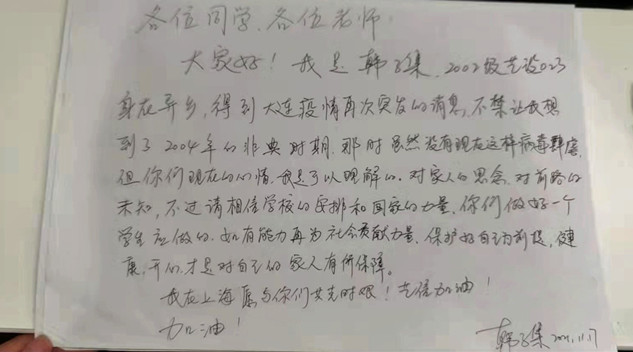 各位同学、各位老师
大家好！我是韩子集，2002级艺设023
身在异乡，得到大连疫情再次突发的消息，不禁让我想
到了2004年的非典时期，那时虽然没有现在这样病毒肆虐
但你们现在的心情，我是可以理解的，对家人的思念，对前路的
未知，不过请相信学校的安排和国家的力量，你们做好一个
学生应做的，如有能力再为社会贡献力量，保护好自己为前提，健
康，开心，才是对自己的家人有所保障。
我在上海愿与你们共克时艰！艺信加油！
加油！
韩子集 2021.11.17